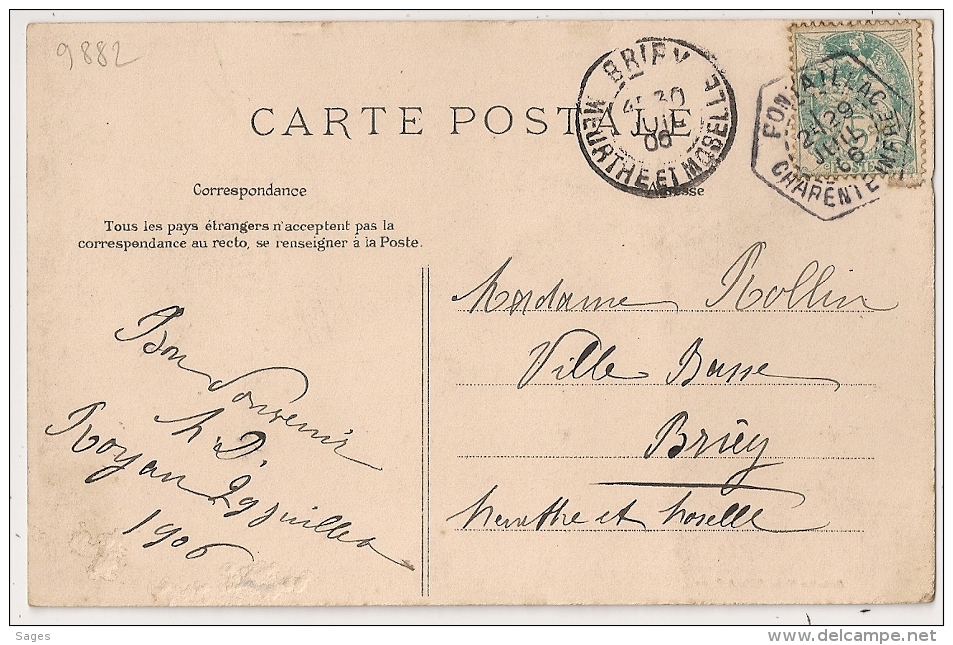 9882
CARTE POSTALE
BRIEY
30
JUIL
06
MEURTHE-ET-MOSELLE
PONTAILLAC
29
JUIL
06
CHARENTE INFRE
Correspondance
Adresse
Tous les pays étrangers n'acceptent pas la
correspondance au recto, se renseigner à la Poste.
Madame Rollin
Ville Basse
Briey
Meurthe et Moselle
Bon Souvenir
Royan 29 Juillet
1906
Sages
delcampe.net